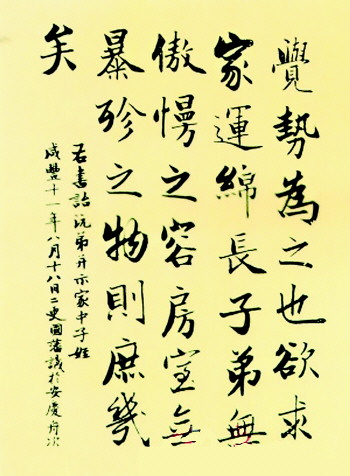 覺勢為之也欲求
家運綿長子弟無
傲慢之容房室無
暴殄之物則庶幾
矣
書詒沅弟并示家中子姪
咸豐十一年八月十八日二更國藩識於安慶舟次